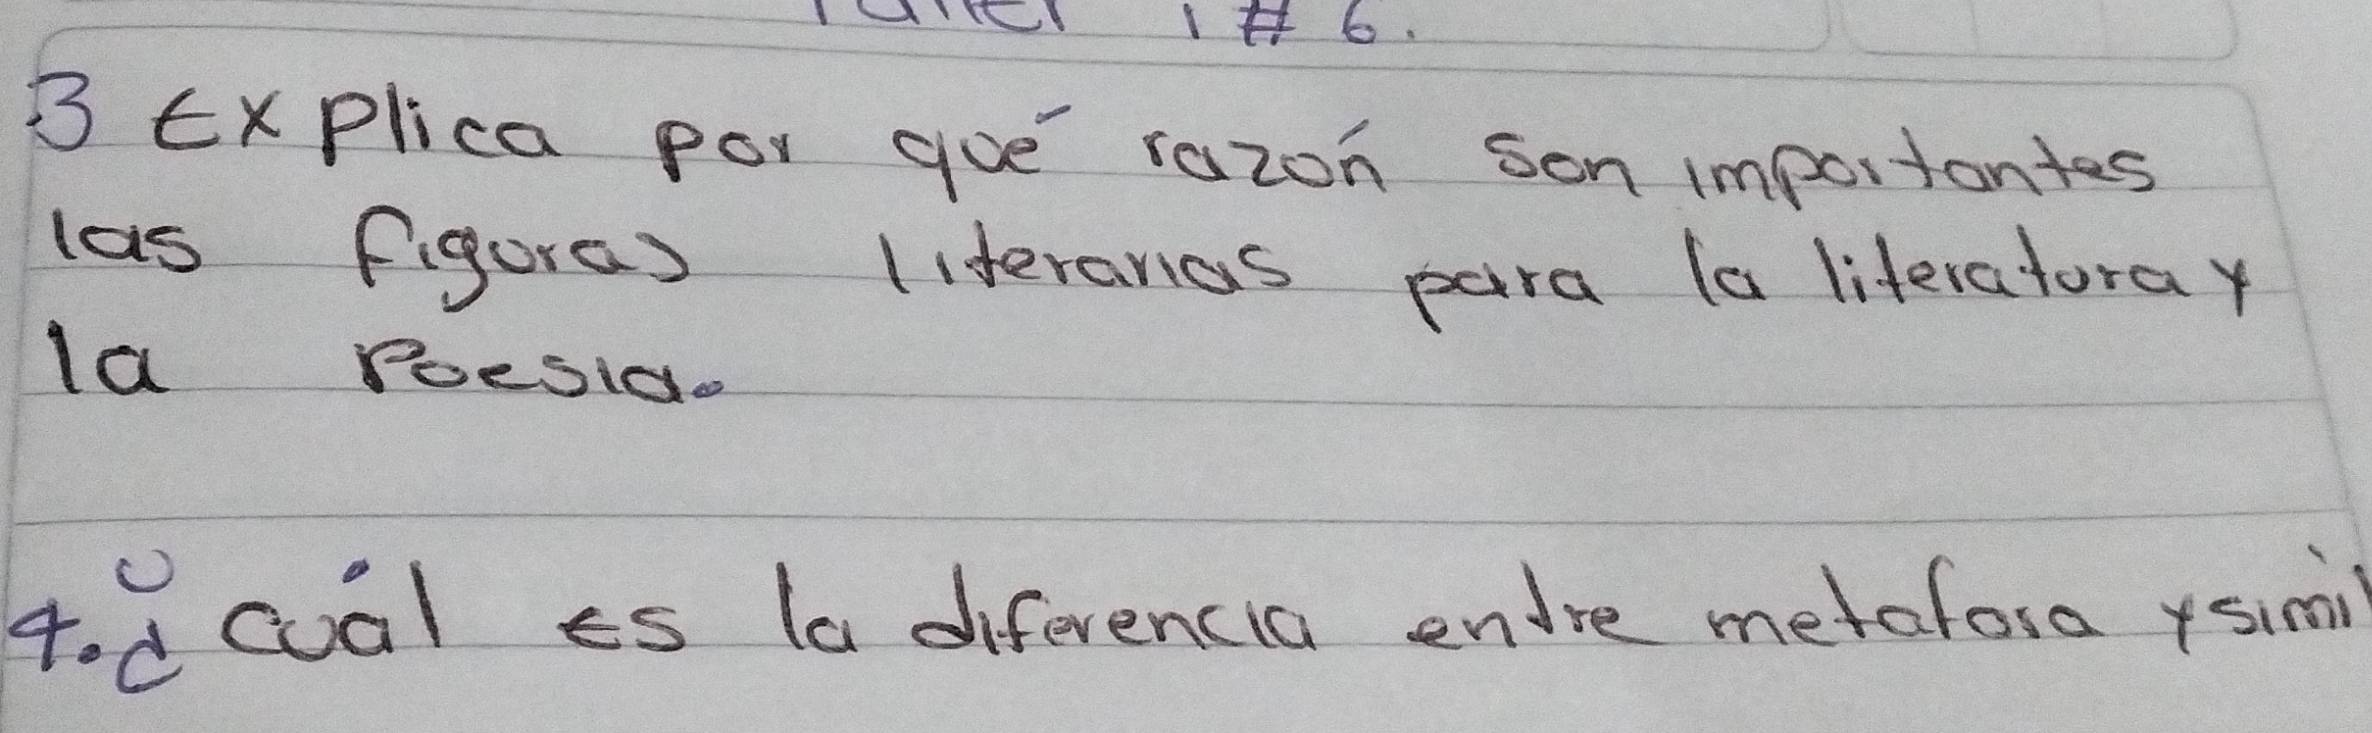 1 # 6.
3 Explica por qué razón son importantes
las figuras literarias para la literatura y
la Poesia.
4. ¿ cuál es la diferencia entre metafora y simil